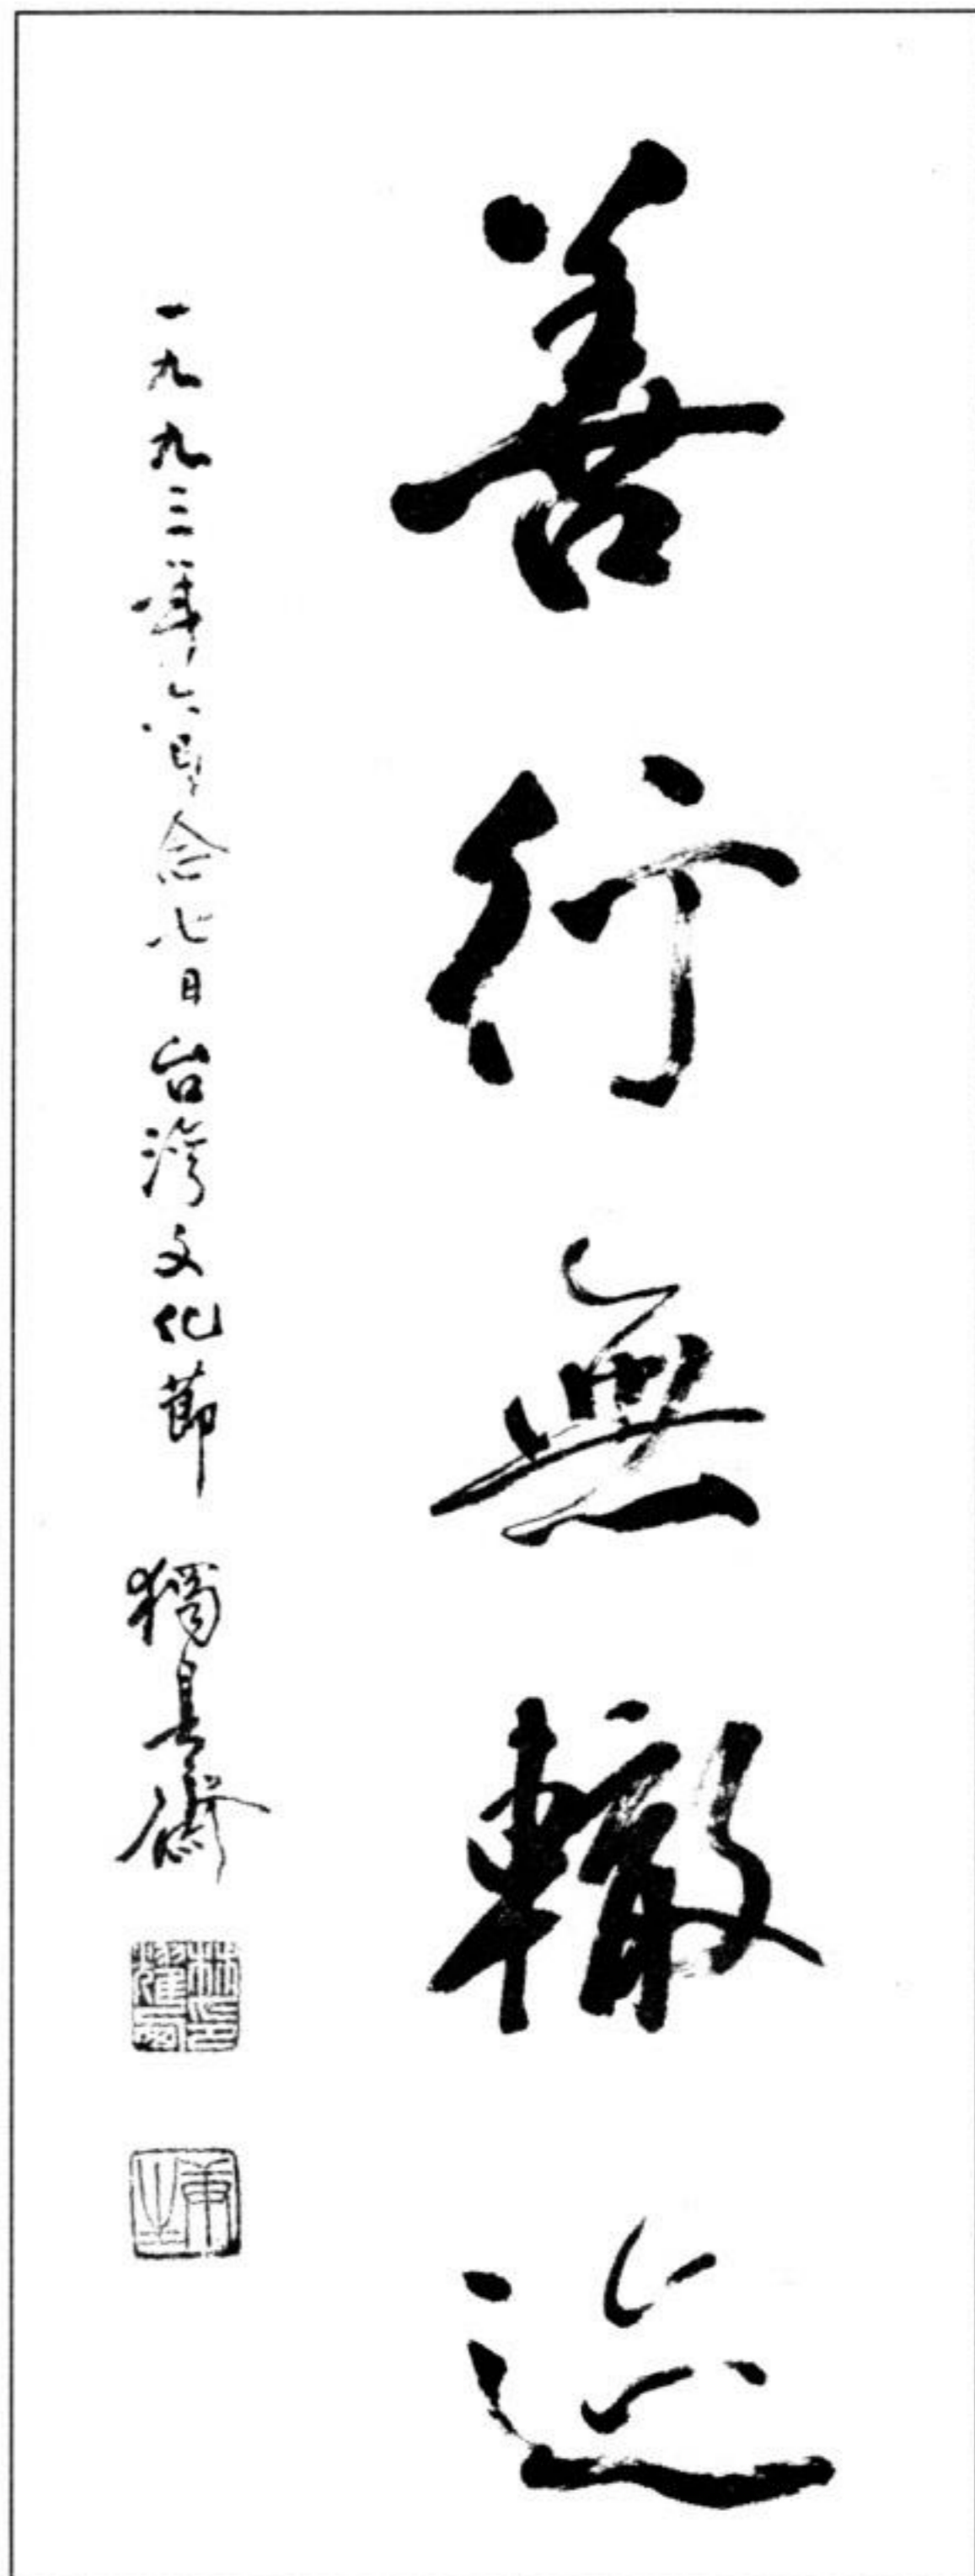 善行無轍迹
一九九三年六月念七日台灣文化節 獨具齋